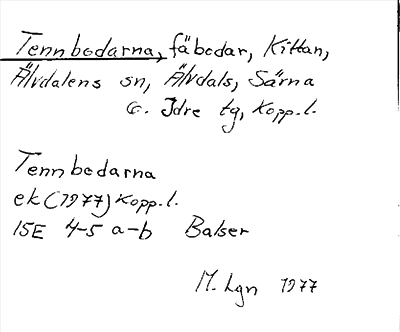 Tennbodarna, fäbodar, Kittan,
Älvdalens sn, Älvdals, Särna
o. Idre tg, Kopp.l.
Tennbodarna
ek (1977) Kopp.l.
15E 4-5 a-b Balser
M. Lgn 1977